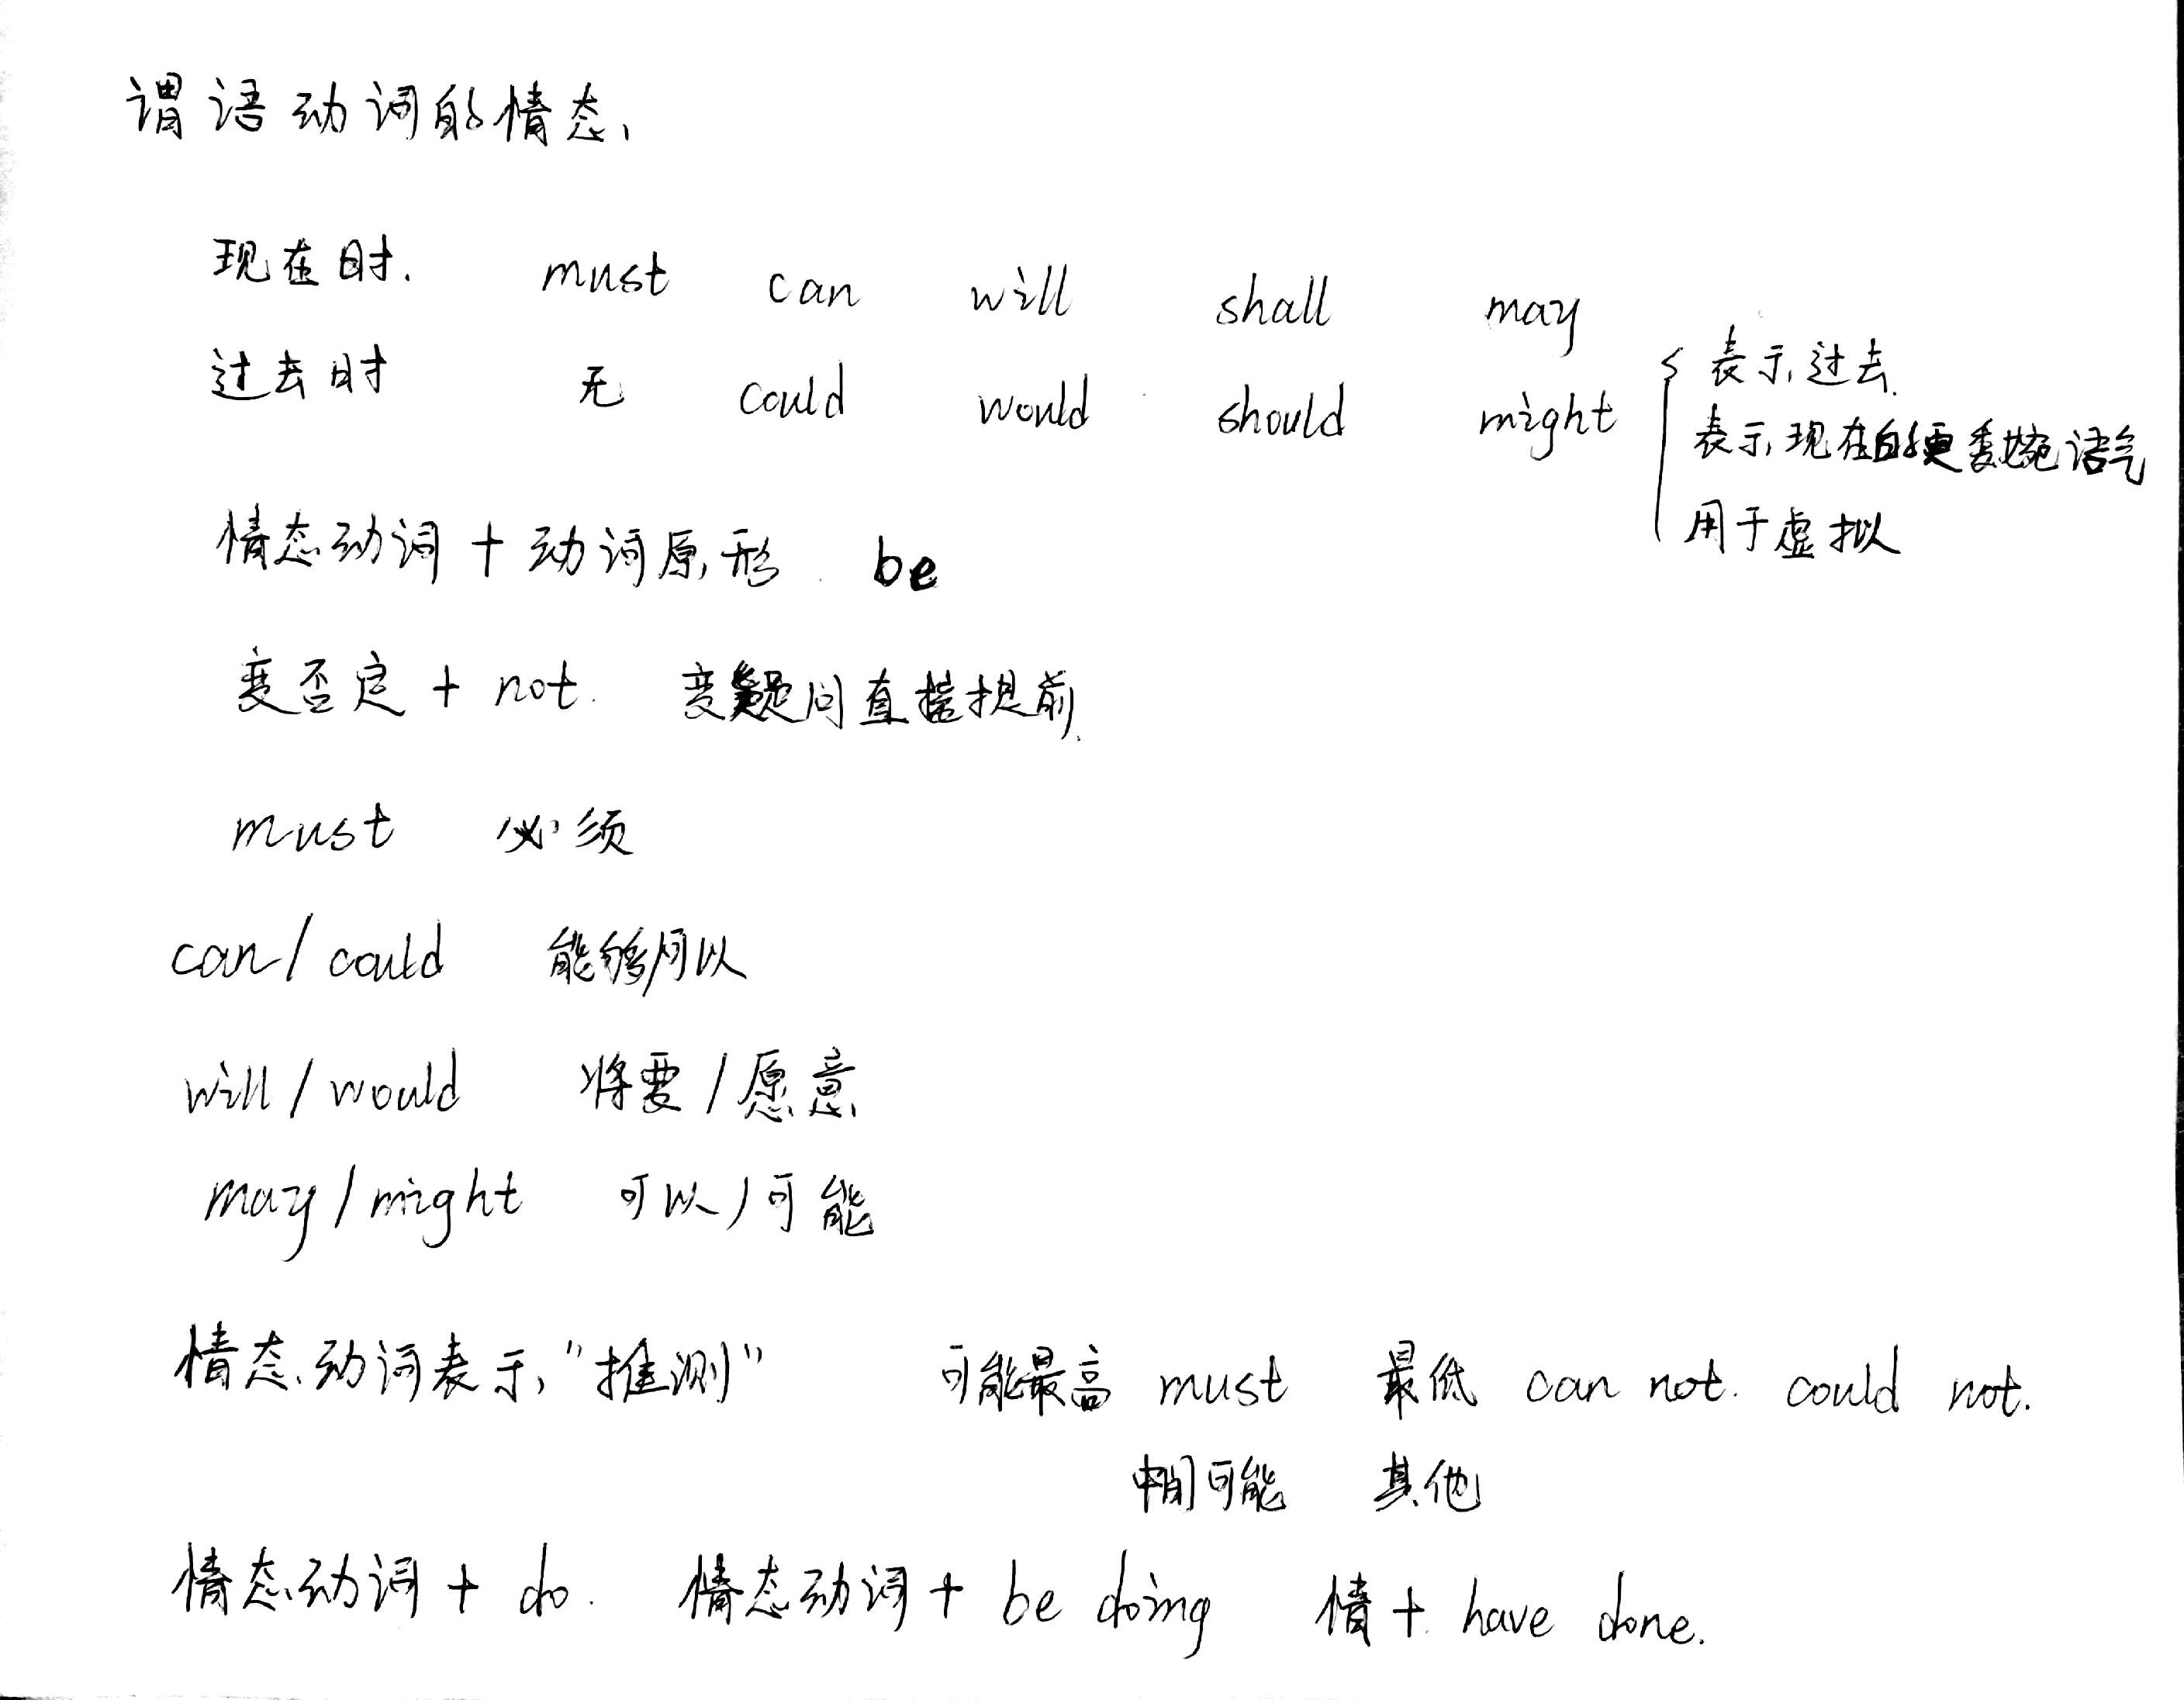 谓语动词的情态、
现在时. must can will shall may
过去时 无 could would should might
表示过去.
表示现在的更委婉语气
用于虚拟
情态动词 + 动词原形 be
变否定 + not. 变疑问直接提前.
must 必须
can / could 能够/可以
will / would 将要 / 愿意
may / might 可以 / 可能
情态动词表示“推测” 可能最高 must 最低 can not. could not.
中间可能 其他
情态动词 + do. 情态动词 + be doing 情 + have done.